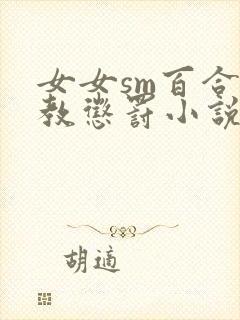 女女sm百合
教懲罰小說
胡適